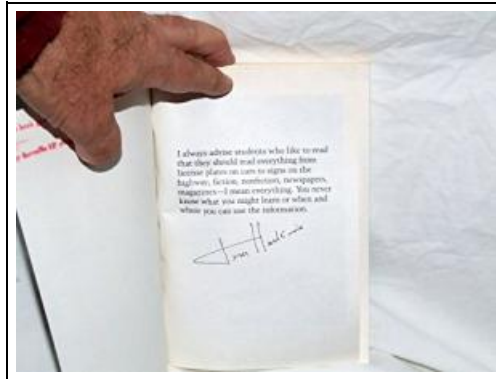 I always advise students who like to read
that they should read everything from
license plates on cars to signs on the
highway, fiction, nonfiction, newspapers,
magazines—I mean everything. You never
know what you might learn or when and
where you can use the information.